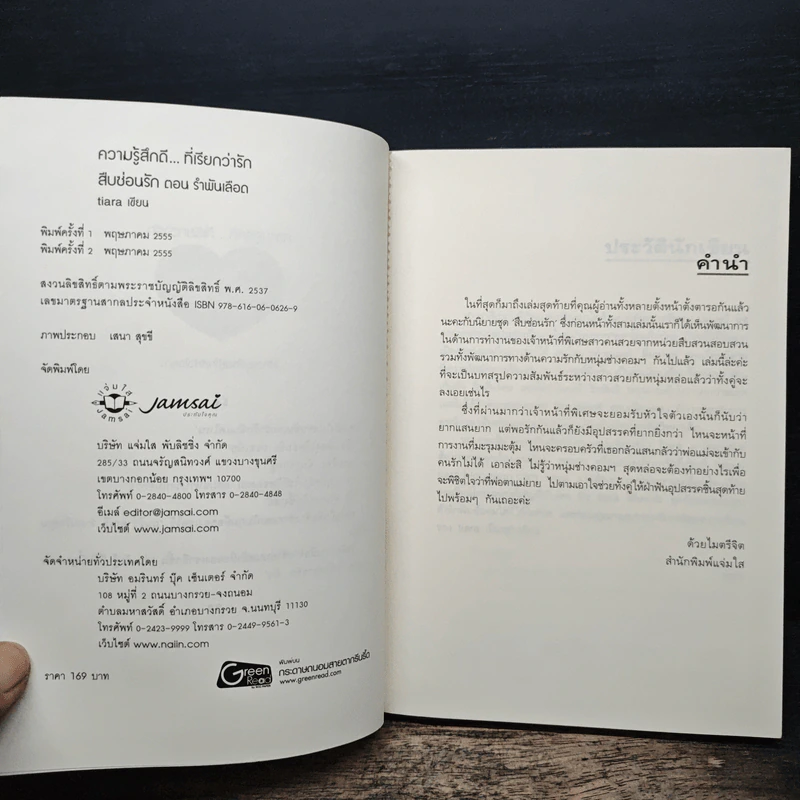 ความรู้สึกดี... ที่เรียกว่ารัก
สืบซ่อนรัก ตอน รำพันเลือด
tiara เขียน
พิมพ์ครั้งที่ 1 พฤษภาคม 2555
พิมพ์ครั้งที่ 2 พฤษภาคม 2555
สงวนลิขสิทธิ์ตามพระราชบัญญัติลิขสิทธิ์ พ.ศ. 2537
เลขมาตรฐานสากลประจำหนังสือ ISBN 978-616-06-0626-9
ภาพประกอบ เสนา สุขชี
จัดพิมพ์โดย
แจ่มใส
JAMSAI
Jamsai
บริษัท แจ่มใส พับลิชชิ่ง จำกัด
285/33 ถนนจรัญสนิทวงศ์ แขวงบางขุนศรี
เขตบางกอกน้อย กรุงเทพฯ 10700
โทรศัพท์ 0-2840-4800 โทรสาร 0-2840-4848
อีเมล์ editor@jamsai.com
เว็บไซต์ www.jamsai.com
จัดจำหน่ายทั่วประเทศโดย
บริษัท อมรินทร์ บุ๊ค เซ็นเตอร์ จำกัด
108 หมู่ที่ 2 ถนนบางกรวย-จงถนอม
ตำบลมหาสวัสดิ์ อำเภอบางกรวย จ.นนทบุรี 11130
โทรศัพท์ 0-2423-9999 โทรสาร 0-2449-9561-3
เว็บไซต์ www.naiin.com
ราคา 169 บาท
Green
Read
พิมพ์บน
กระดาษถนอมสายตากรีนรี้ด
www.greenread.com
ประวัตินักเขียน
คำนำ
ในที่สุดก็มาถึงเล่มสุดท้ายที่คุณผู้อ่านทั้งหลายตั้งหน้าตั้งตารอกันแล้ว
นะคะกับนิยายชุด 'สืบซ่อนรัก' ซึ่งก่อนหน้าทั้งสามเล่มนั้นเราก็ได้เห็นพัฒนาการ
ในด้านการทำงานของเจ้าหน้าที่พิเศษสาวคนสวยจากหน่วยสืบสวนสอบสวน
รวมทั้งพัฒนาการทางด้านความรักกับหนุ่มช่างคอมฯ กันไปแล้ว เล่มนี้ล่ะค่ะ
ที่จะเป็นบทสรุปความสัมพันธ์ระหว่างสาวสวยกับหนุ่มหล่อแล้วว่าทั้งคู่จะ
ลงเอยเช่นไร
ซึ่งที่ผ่านมากว่าเจ้าหน้าที่พิเศษจะยอมรับหัวใจตัวเองนั้นก็นับว่า
ยากแสนยาก แต่พอรักกันแล้วก็ยังมีอุปสรรคที่ยากยิ่งกว่า ไหนจะหน้าที่
การงานที่มะรุมมะตุ้ม ไหนจะครอบครัวที่เธอกลัวแสนกลัวว่าพ่อแม่จะเข้ากับ
คนรักไม่ได้ เอาล่ะสิ ไม่รู้ว่าหนุ่มช่างคอมฯ สุดหล่อจะต้องทำอย่างไรเพื่อ
จะพิชิตใจว่าที่พ่อตาแม่ยาย ไปตามเอาใจช่วยทั้งคู่ให้ฝ่าฟันอุปสรรคชิ้นสุดท้าย
ไปพร้อมๆ กันเถอะค่ะ
ด้วยไมตรีจิต
สำนักพิมพ์แจ่มใส